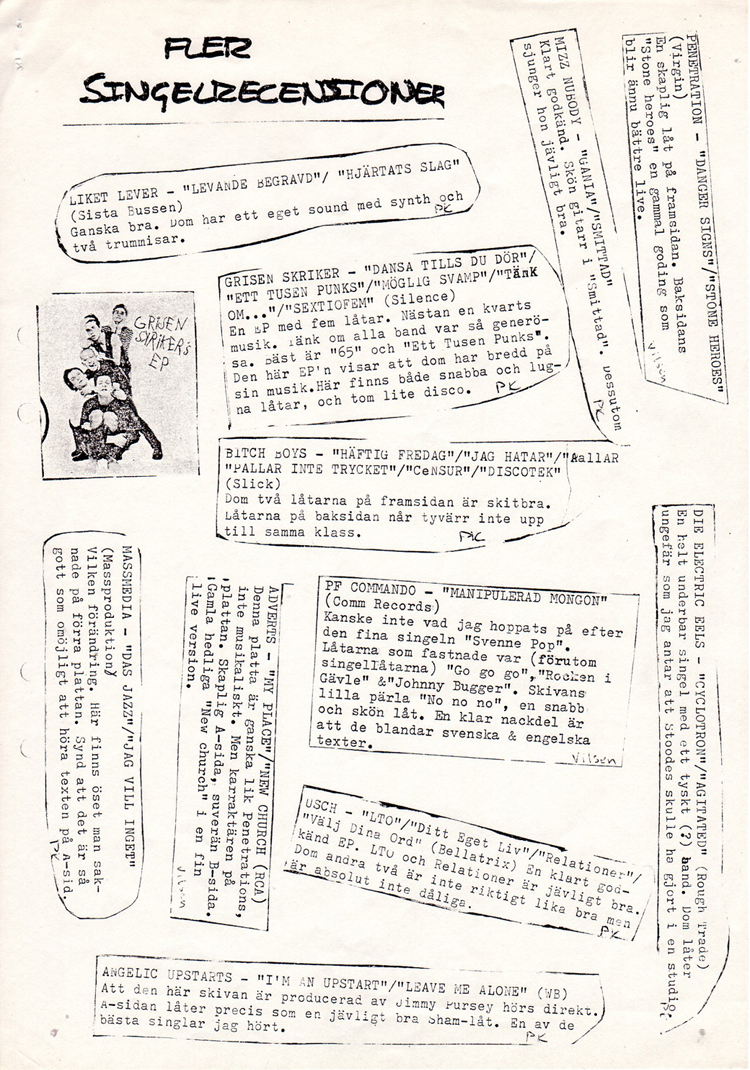 FLER
SINGELRECENSIONER
LIKET LEVER - "LEVANDE BEGRAVD"/ "HJÄRTATS SLAG"
(Sista Bussen)
Ganska bra. Dom har ett eget sound med synth och
två trummisar.
PK
MIZZ NUBODY - "GANIA"/"SMITTAD"
Klart godkänd. Skön gitarr i "Smittad". Dessutom
sjunger hon jävligt bra.
PK
PENETRATION - "DANGER SIGNS"/"STONE HEROES"
(Virgin)
En skaplig låt på framsidan. Baksidans
"Stone heroes" en gammal goding som
blir ännu bättre live.
Vilsen
GRISEN SKRIKER - "DANSA TILLS DU DÖR"/
"ETT TUSEN PUNKS"/"MÖGLIG SVAMP"/"TÄnK
OM..."/"SEXTIOFEM" (Silence)
En EP med fem låtar. Nästan en kvarts
musik. Tänk om alla band var så generö-
sa. Bäst är "65" och "Ett Tusen Punks".
Den här EP'n visar att dom har bredd på
sin musik.Här finns både snabba och lug-
na låtar, och tom lite disco.
PK
GRISEN
SKRIKER's
EP
BITCH BOYS - "HÄFTIG FREDAG"/"JAG HATAR"/
"PALLAR INTE TRYCKET"/"CeNSUR"/"DISCOTEK"
(Slick)
Dom två låtarna på framsidan är skitbra.
Låtarna på baksidan når tyvärr inte upp
till samma klass.
PK
MASSMEDIA - "DAS JAZZ"/"JAG VILL INGET"
(Massproduktion)
Vilken förändring. Här finns öset man sak-
nade på förra plattan. Synd att det är så
gott som omöjligt att höra texten på A-sid.
PK
ADVERTS - "MY PLACE"/"NEW CHURCH (RCA)
Denna platta är ganska lik Penetrations,
inte musikaliskt. Men karraktären på
plattan. Skaplig A-sida, suverän B-sida.
Gamla hedliga "New church" i en fin
live version.
Vilsen
PF COMMANDO - "MANIPULERAD MONGON"
(Comm Records)
Kanske inte vad jag hoppats på efter
den fina singeln "Svenne Pop".
Låtarna som fastnade var (förutom
singellåtarna) "Go go go","Rocken i
Gävle" &"Johnny Bugger". Skivans
lilla pärla "No no no", en snabb
och skön låt. En klar nackdel är
att de blandar svenska & engelska
texter.
Vilsen
DIE ELECTRIC EELS - "CYCLOTRON"/"AGITATED" (Rough Trade)
En helt underbar singel med ett tyskt (?) band. Dom låter
ungefär som jag antar att Stoodes skulle ha gjort i en studio.
PK
USCH - "LTO"/"Ditt Eget Liv"/"Relationer"/
"Välj Dina Ord" (Bellatrix) En klart god-
känd EP. LTO och Relationer är jävligt bra.
Dom andra två är inte riktigt lika bra men
är absolut inte dåliga.
PK
ANGELIC UPSTARTS - "I'M AN UPSTART"/"LEAVE ME ALONE" (WB)
Att den här skivan är producerad av Jimmy Pursey hörs direkt.
A-sidan låter precis som en jävligt bra Sham-låt. En av de
bästa singlar jag hört.
PK